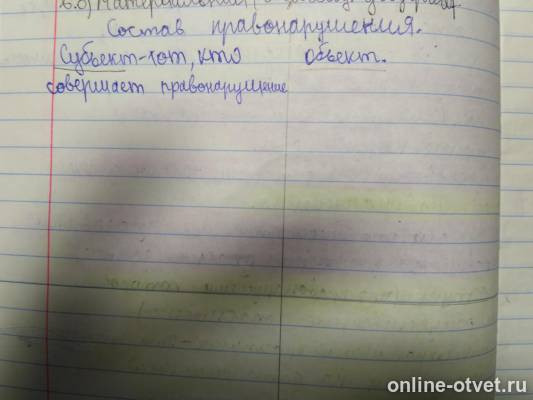 Состав правонарушения.
Субъект-тот, кто объект.
совершает правонарушение
online-otvet.ru